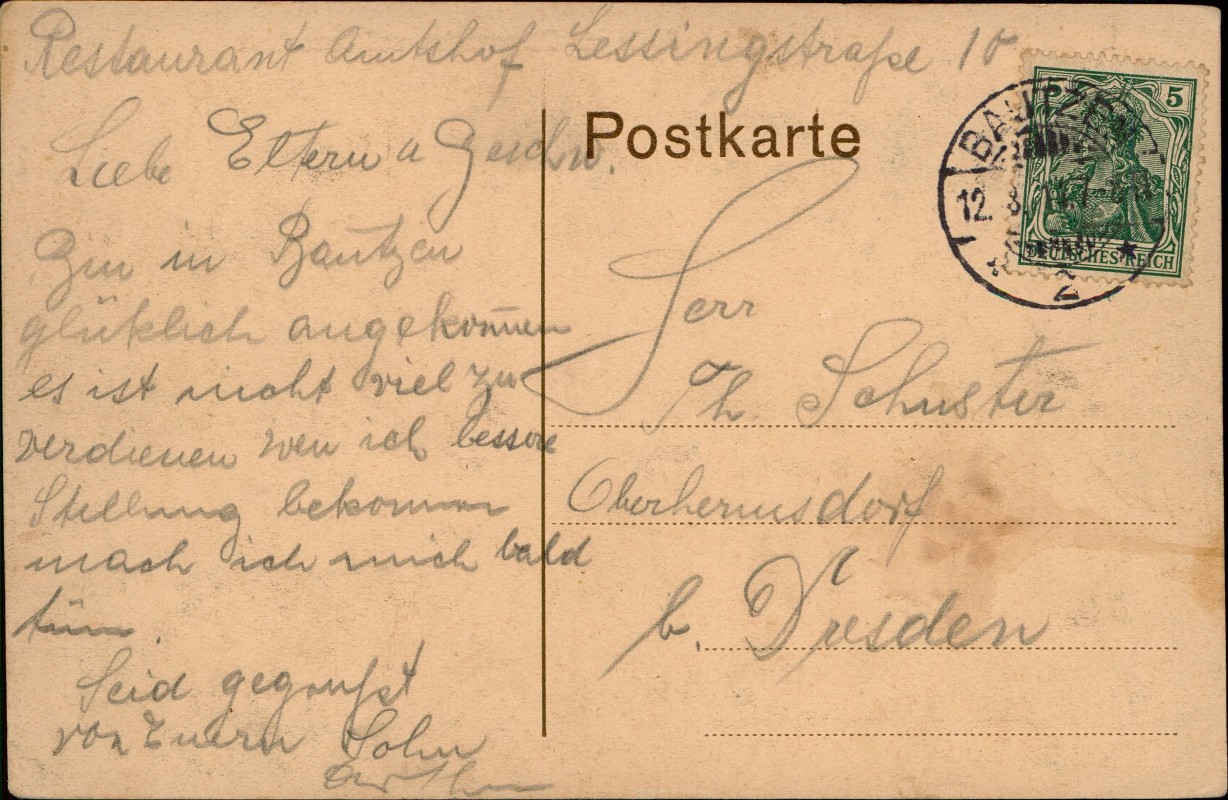 Restaurant Amtshof Lessingstraße 10
Liebe Eltern u Geschw.
Bin in Bautzen
glüklich angekom̄en
es ist nicht viel zu
verdienen wen ich bessere
Stellung bekommen
mach ich mich bald
Seid gegrüßt
von Euern Sohn
Arthur
Postkarte
Herr
Th. Schuster
Oberhermsdorf
b. Dresden
BAUTZEN
12. 8.
2
5 5
DEUTSCHES REICH